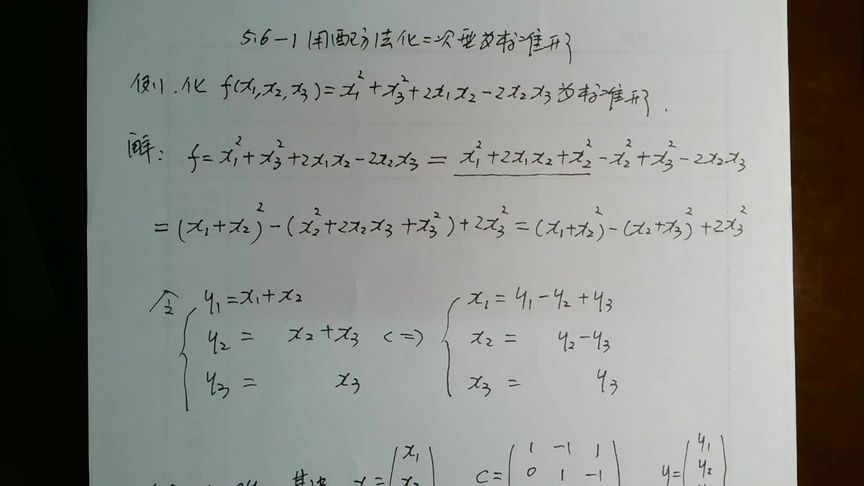 5.6-1 用配方法化二次型为标准形
例1.化 f(x₁,x₂,x₃)=x₁²+x₃²+2x₁x₂-2x₂x₃为标准形.
解: f=x₁²+x₃²+2x₁x₂-2x₂x₃ = x₁²+2x₁x₂+x₂²-x₂²+x₃²-2x₂x₃
=(x₁+x₂)²-(x₂²+2x₂x₃+x₃²)+2x₃²=(x₁+x₂)²-(x₂+x₃)²+2x₃²
令 { y₁=x₁+x₂ { x₁=y₁-y₂+y₃
y₂= x₂+x₃ <=> x₂= y₂-y₃
y₃= x₃ x₃= y₃
其中 x=(x₁ x₂ C=(1 -1 1 0 1 -1) y=(y₁ y₂